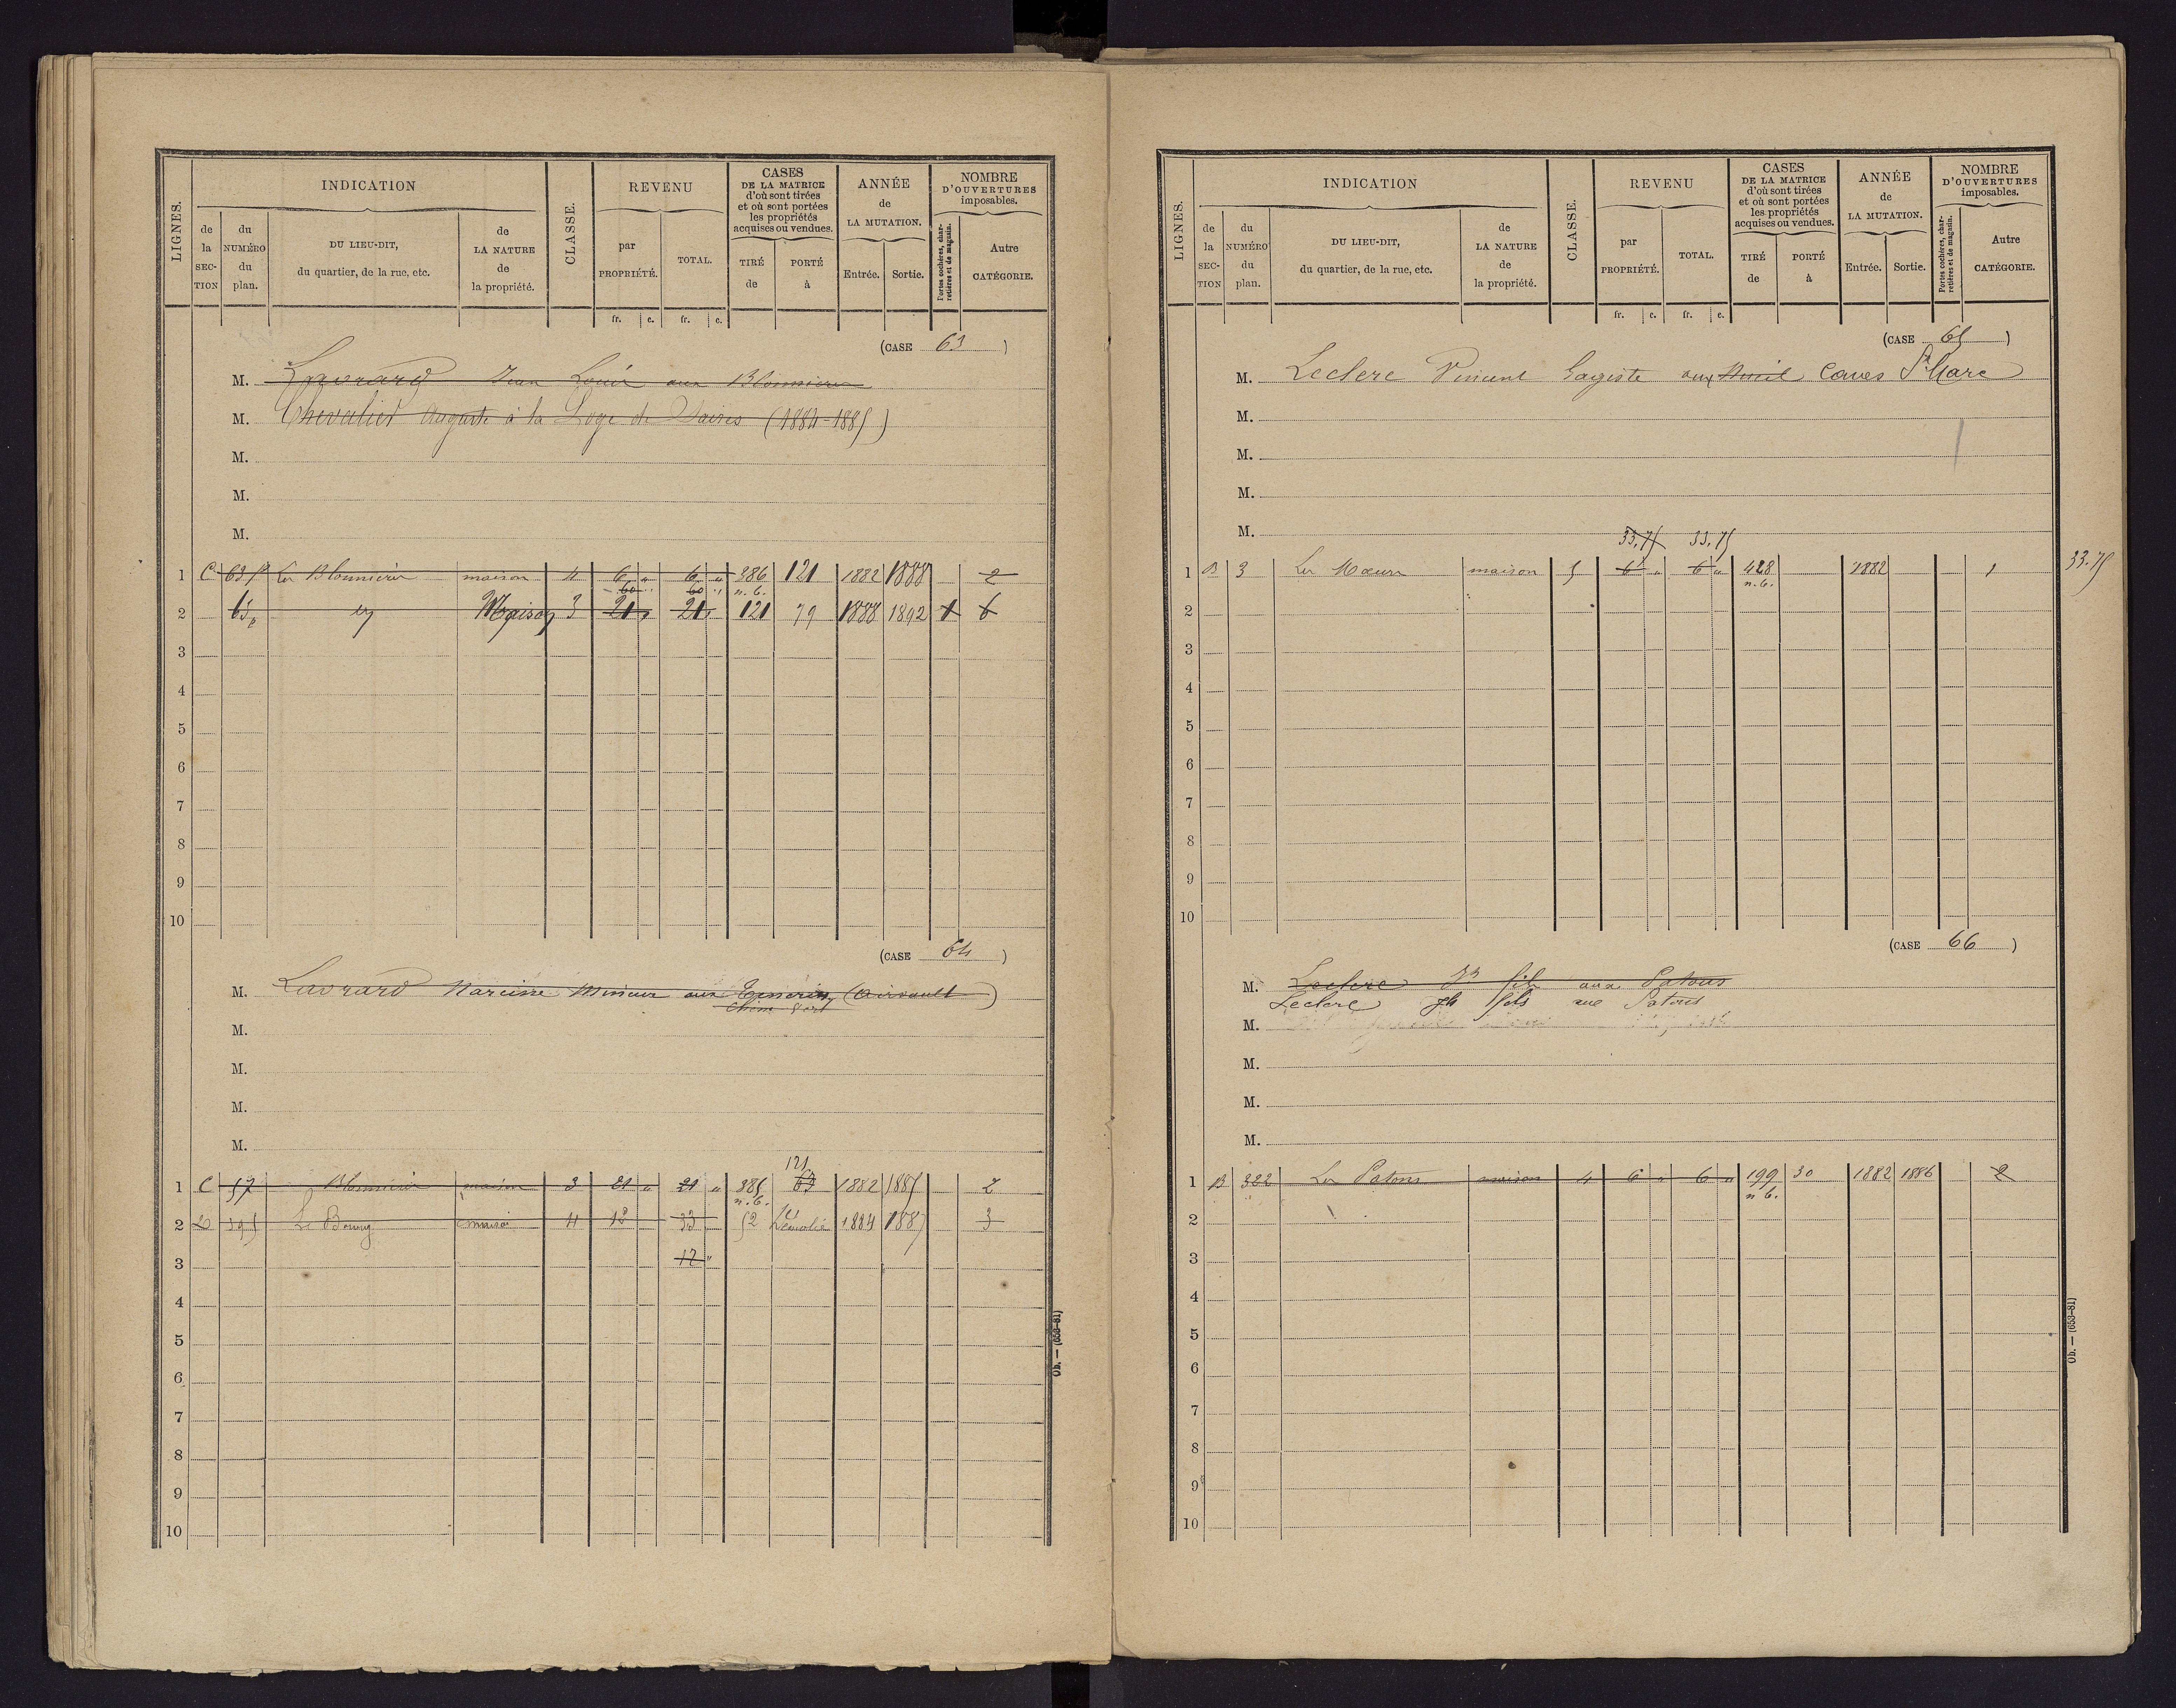 LIGNES.
INDICATION
de la SEC-TION
du NUMÉRO du plan.
DU LIEU-DIT, du quartier, de la rue, etc.
de LA NATURE de la propriété.
CLASSE.
REVENU
par PROPRIÉTÉ.
TOTAL.
fr. c. fr. c.
CASES DE LA MATRICE d'où sont tirées et où sont portées les propriétés acquises ou vendues.
TIRÉ de
PORTÉ à
ANNÉE de LA MUTATION.
Entrée. Sortie.
NOMBRE D'OUVERTURES imposables.
Portes cochères, charretières et de magasin.
Autre CATÉGORIE.
(CASE 63)
M. Lavrard Jean Louis aux Blonnières
M. Chevalier Auguste à la Loge de Vaires (1884-1885)
M.
M.
M.
1 C 63 p Les Blonnières maison 4 6 „ 6 „ 386 121 1882 1888 2
60 „ 60 „ n. b.
2 63p Maison 3 21 „ 21 „ 121 79 1888 1892 1 6
3
4
5
6
7
8
9
10
(CASE 64)
M. Lavrard Narcisse Mineur aux (Airvault)
M.
M.
M.
M.
121
1 C 57 Blonnières maison 3 21 „ 21 „ 385 63 1882 1885 2
n. b.
2 D 395 Le Bourg maison 4 12 33 52 Démolie 1884 1887 3
3 12 „
4
5
6
7
8
9
10
Ob. — (653-81)
LIGNES.
INDICATION
de la SEC-TION
du NUMÉRO du plan.
DU LIEU-DIT, du quartier, de la rue, etc.
de LA NATURE de la propriété.
CLASSE.
REVENU
par PROPRIÉTÉ.
TOTAL.
fr. c. fr. c.
CASES DE LA MATRICE d'où sont tirées et où sont portées les propriétés acquises ou vendues.
TIRÉ de
PORTÉ à
ANNÉE de LA MUTATION.
Entrée. Sortie.
NOMBRE D'OUVERTURES imposables.
Portes cochères, charretières et de magasin.
Autre CATÉGORIE.
(CASE 65)
M. Leclerc Vincent Gagiste aux Caves St Marc
M.
M.
M.
M.
33,75 33,75
1 B 3 maison 5 6 „ 6 „ 428 1882 1 33.75
n. b.
2
3
4
5
6
7
8
9
10
(CASE 66)
M. Leclerc Jh fils aux Patous
Leclerc Jh fils aux Patous
M.
M.
M.
M.
1 B 322 Les Patous maison 4 6 „ 6 „ 199 30 1882 1886 2
n b.
2
3
4
5
6
7
8
9
10
Ob. — (653-81)